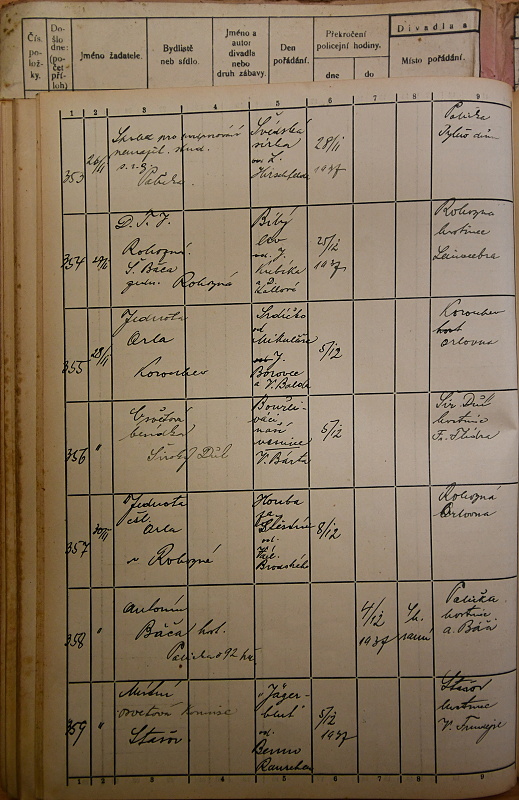 Čís.
po-
lož-
ky.
Do-
šlo
dne:
(po-
čet
pří-
loh)
Jméno žadatele.
Bydliště
neb sídlo.
Jméno a
autor
divadla
nebo
druh zábavy.
Den
pořádání.
Překročení
policejní hodiny.
dne
do
Divadla a
Místo pořádání.
1 2 3 4 5 6 7 8 9
353
26/11
pro
Polička
Švédská
sirka
od L.
Hirschfelda
28/11
1937
Polička
Tylův dům
354
D. T. J.
Rohozná
Š. Báča
Rohozná
Bílý
lev
od J.
Kubíka
25/12
1937
Rohozná
hostinec
355
28/11
Jednota
Orla
Korouhev
Srdíčko
od
Mikuláše
od J.
Borovce
a V. Balda
5/12
Korouhev
Orlovna
356
"
Osvětová
beseda
Široký Důl
Bouřli-
váci
naší
vesnice
V. Bárta
5/12
Šir. Důl
hostinec
Fr.
357
30/11
Jednota
čsl.
Orla
v Rohozné
Houba
8/12
Rohozná
Orlovna
358
"
Antonín
Báča host.
Polička 92
4/12
1937
4h.
ranní
Polička
hostinec
A. Báči
359
"
Místní
osvětová komise
Stašov
"Jäger-
blut"
od
Benno
Rauchen
5/12
1937
Stašov
hostinec
V.
1 2 3 4 5 6 7 8 9